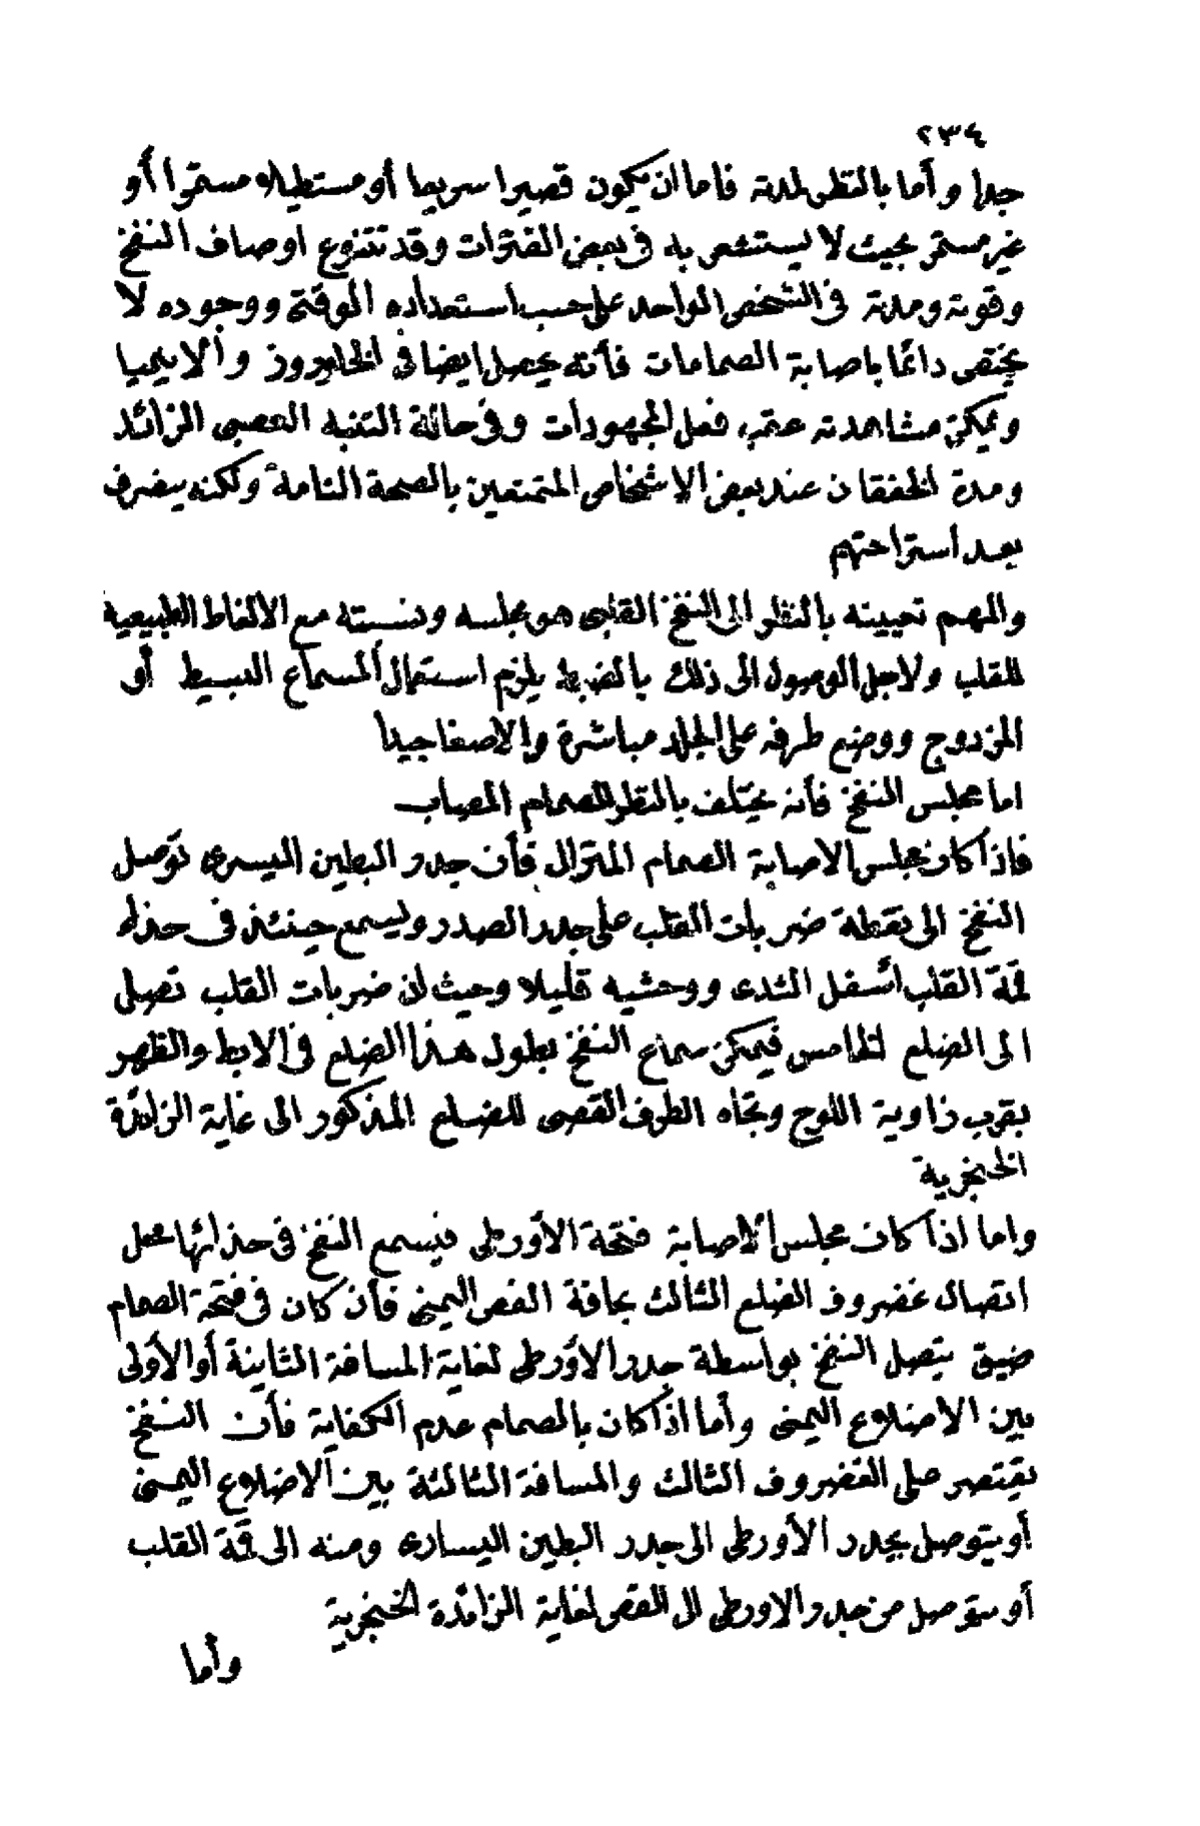 ٢٣٤
جدا وأما بالنظر لمدته فاما ان يكون قصيرا سريعا أو مستطيلا مستمرا أو
غير مستمر بحيث لا يستشعر به في بعض الفترات وقد تتنوع اوصاف النفخ
وقوته ومدته في الشخص الواحد على حسب استعداده الموقتى ووجوده لا
يختص دائما باصابة الصمامات فأنه يحصل ايضا في الخلوروز والانيميا
ويمكن مشاهدته عقب فعل المجهودات وفي حالة التنبه العصبى الزائد
ومدة الخفقان عند بعض الاشخاص المتمتعين بالصحة التامة ولكنه ينصرف
بعد استراحتهم
والمهم تعيينه بالنظر الى النفخ القلبى هو مجلسه ونسبته مع الالغاط الطبيعية
للقلب ولاجل الوصول الى ذلك بالضبط يلزم استعمال المسماع البسيط أو
المزدوج ووضع طرفه على الجلد مباشرة والاصغا جيدا
اما مجلس النفخ فأنه يختلف بالنظر للصمام المصاب
فاذا كان مجلس الاصابة الصمام المترال فأن جدر البطين اليسرى توصل
النفخ الى نقطة ضربات القلب على جدر الصدر ويسمع حينئذ فى حذاء
قمة القلب أسفل الثدى ووحشيه قليلا وحيث ان ضربات القلب تصل
الى الضلع الخامس فيمكن سماع النفخ بطول هذا الضلع في الابط والظهر
بقرب زاوية اللوح وتجاه الطرف القصى للضلع المذكور الى غاية الزائدة
الخنجرية
واما اذا كان مجلس الاصابة فتحة الأورطى فيسمع النفخ في حذائها محل
اتصال غضروف الضلع الثالث بحافة القص اليمنى فأن كان في فتحة الصمام
ضيق يتصل النفخ بواسطة جدر الاورطى لغاية المسافة الثانية أو الأولى
بين الاضلاع اليمنى وأما اذا كان بالصمام عدم الكفاية فأن النفخ
يقتصر على الغضروف الثالث والمسافة الثالثة بين الاضلاع اليمنى
أو يتوصل بجدر الأورطى الى جدر البطين اليسارى ومنه الى قمة القلب
أو يتوصل من جدر الاورطى الى القص لغاية الزائدة الخنجرية
وأما